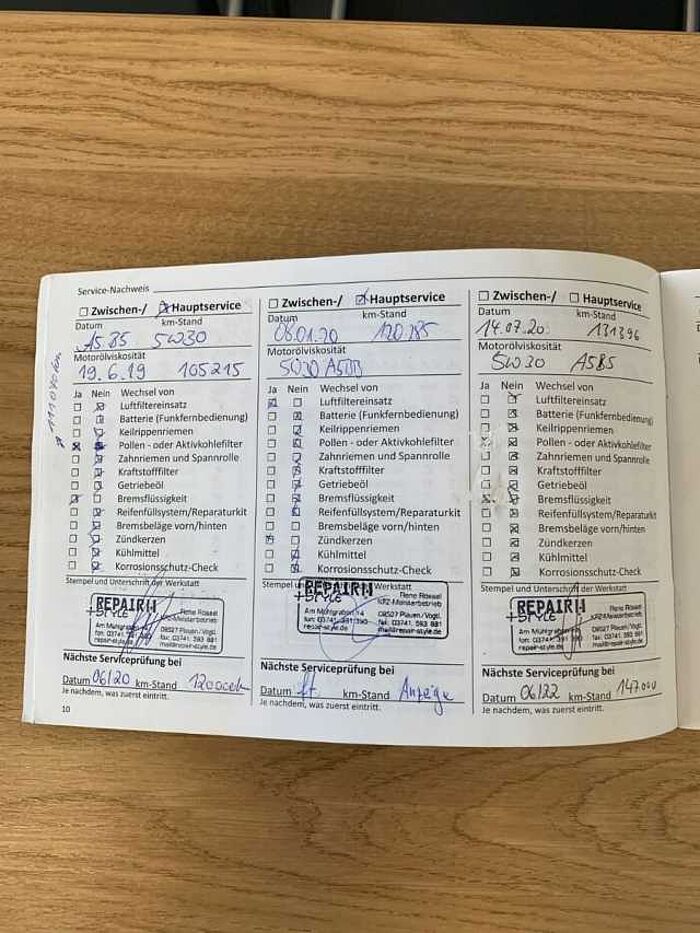 Service-Nachweis
☐ Zwischen-/ ☒ Hauptservice
Datum km-Stand
A5.B5 5W30
Motorölviskosität
19.6.19 105215
Ja Nein Wechsel von
Luftfiltereinsatz
Batterie (Funkfernbedienung)
Keilrippenriemen
Pollen - oder Aktivkohlefilter
Zahnriemen und Spannrolle
Kraftstofffilter
Getriebeöl
Bremsflüssigkeit
Reifenfüllsystem/Reparaturkit
Bremsbeläge vorn/hinten
Zündkerzen
Kühlmittel
Korrosionsschutz-Check
Stempel und Unterschrift der Werkstatt
REPAIR
+STYLE
Rene Rossel
KFZ-Meisterbetrieb
Am Mühlgraben
08527 Plauen/Vogtl.
fon: 03741
repair-style.de
Nächste Serviceprüfung bei
Datum 06/20 km-Stand
Je nachdem, was zuerst eintritt.
10
☐ Zwischen-/ ☒ Hauptservice
Datum km-Stand
06.01.20 120785
Motorölviskosität
5W30
Ja Nein Wechsel von
Luftfiltereinsatz
Batterie (Funkfernbedienung)
Keilrippenriemen
Pollen - oder Aktivkohlefilter
Zahnriemen und Spannrolle
Kraftstofffilter
Getriebeöl
Bremsflüssigkeit
Reifenfüllsystem/Reparaturkit
Bremsbeläge vorn/hinten
Zündkerzen
Kühlmittel
Korrosionsschutz-Check
Stempel und Unterschrift der Werkstatt
REPAIR
+STYLE
Rene Rossel
KFZ-Meisterbetrieb
Am Mühlgraben 14
08527 Plauen/Vogtl.
mail@repair-style.de
repair-style.de
Nächste Serviceprüfung bei
Datum lt. km-Stand Anzeige
Je nachdem, was zuerst eintritt.
☐ Zwischen-/ ☐ Hauptservice
Datum km-Stand
14.07.20 131396
Motorölviskosität
5W30 A5B5
Ja Nein Wechsel von
Luftfiltereinsatz
Batterie (Funkfernbedienung)
Keilrippenriemen
Pollen - oder Aktivkohlefilter
Zahnriemen und Spannrolle
Kraftstofffilter
Getriebeöl
Bremsflüssigkeit
Reifenfüllsystem/Reparaturkit
Bremsbeläge vorn/hinten
Zündkerzen
Kühlmittel
Korrosionsschutz-Check
Stempel und Unterschrift der Werkstatt
REPAIR
+STYLE
Rene Rossel
KFZ-Meisterbetrieb
Am Mühlgraben
08527 Plauen/Vogtl.
mail@repair-style.de
repair-style.de
Nächste Serviceprüfung bei
Datum 06/22 km-Stand 147000
Je nachdem, was zuerst eintritt.